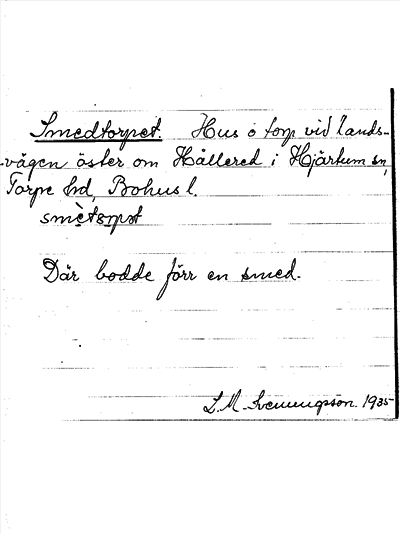 Smedtorpet. Hus o torp vid lands-
vägen öster om Hållered i Hjärtum sn,
Torpe hd, Bohusl.
smètorpet
Där bodde förr en smed.
L.M. Svenungsson. 1935